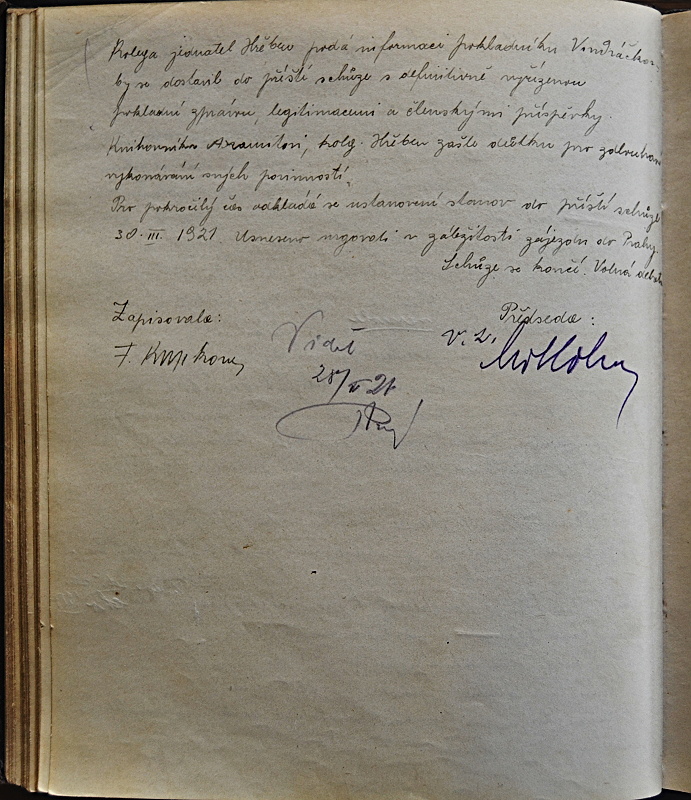 Kolega jednatel Hřeben podá informaci pokladníku Vondráčkov
by se dostavil do příští schůze s definitivně vyřízenou
pokladní zprávou, legitimacemi a členskými příspěvky.
Knihovníku Aramitovi, koleg. Hřeben zašle důtku pro zdlouhavé
vykonávání svých povinností.
Pro pokročilý čas odkládá se ustanovení stanov do příští schůze
30. III. 1921 Usneseno urgovati v záležitosti zájezdu do Prahy.
Schůze se končí. Volná debata
Zapisovala: Předseda:
F. V. Z.
Viděl
28/ 21